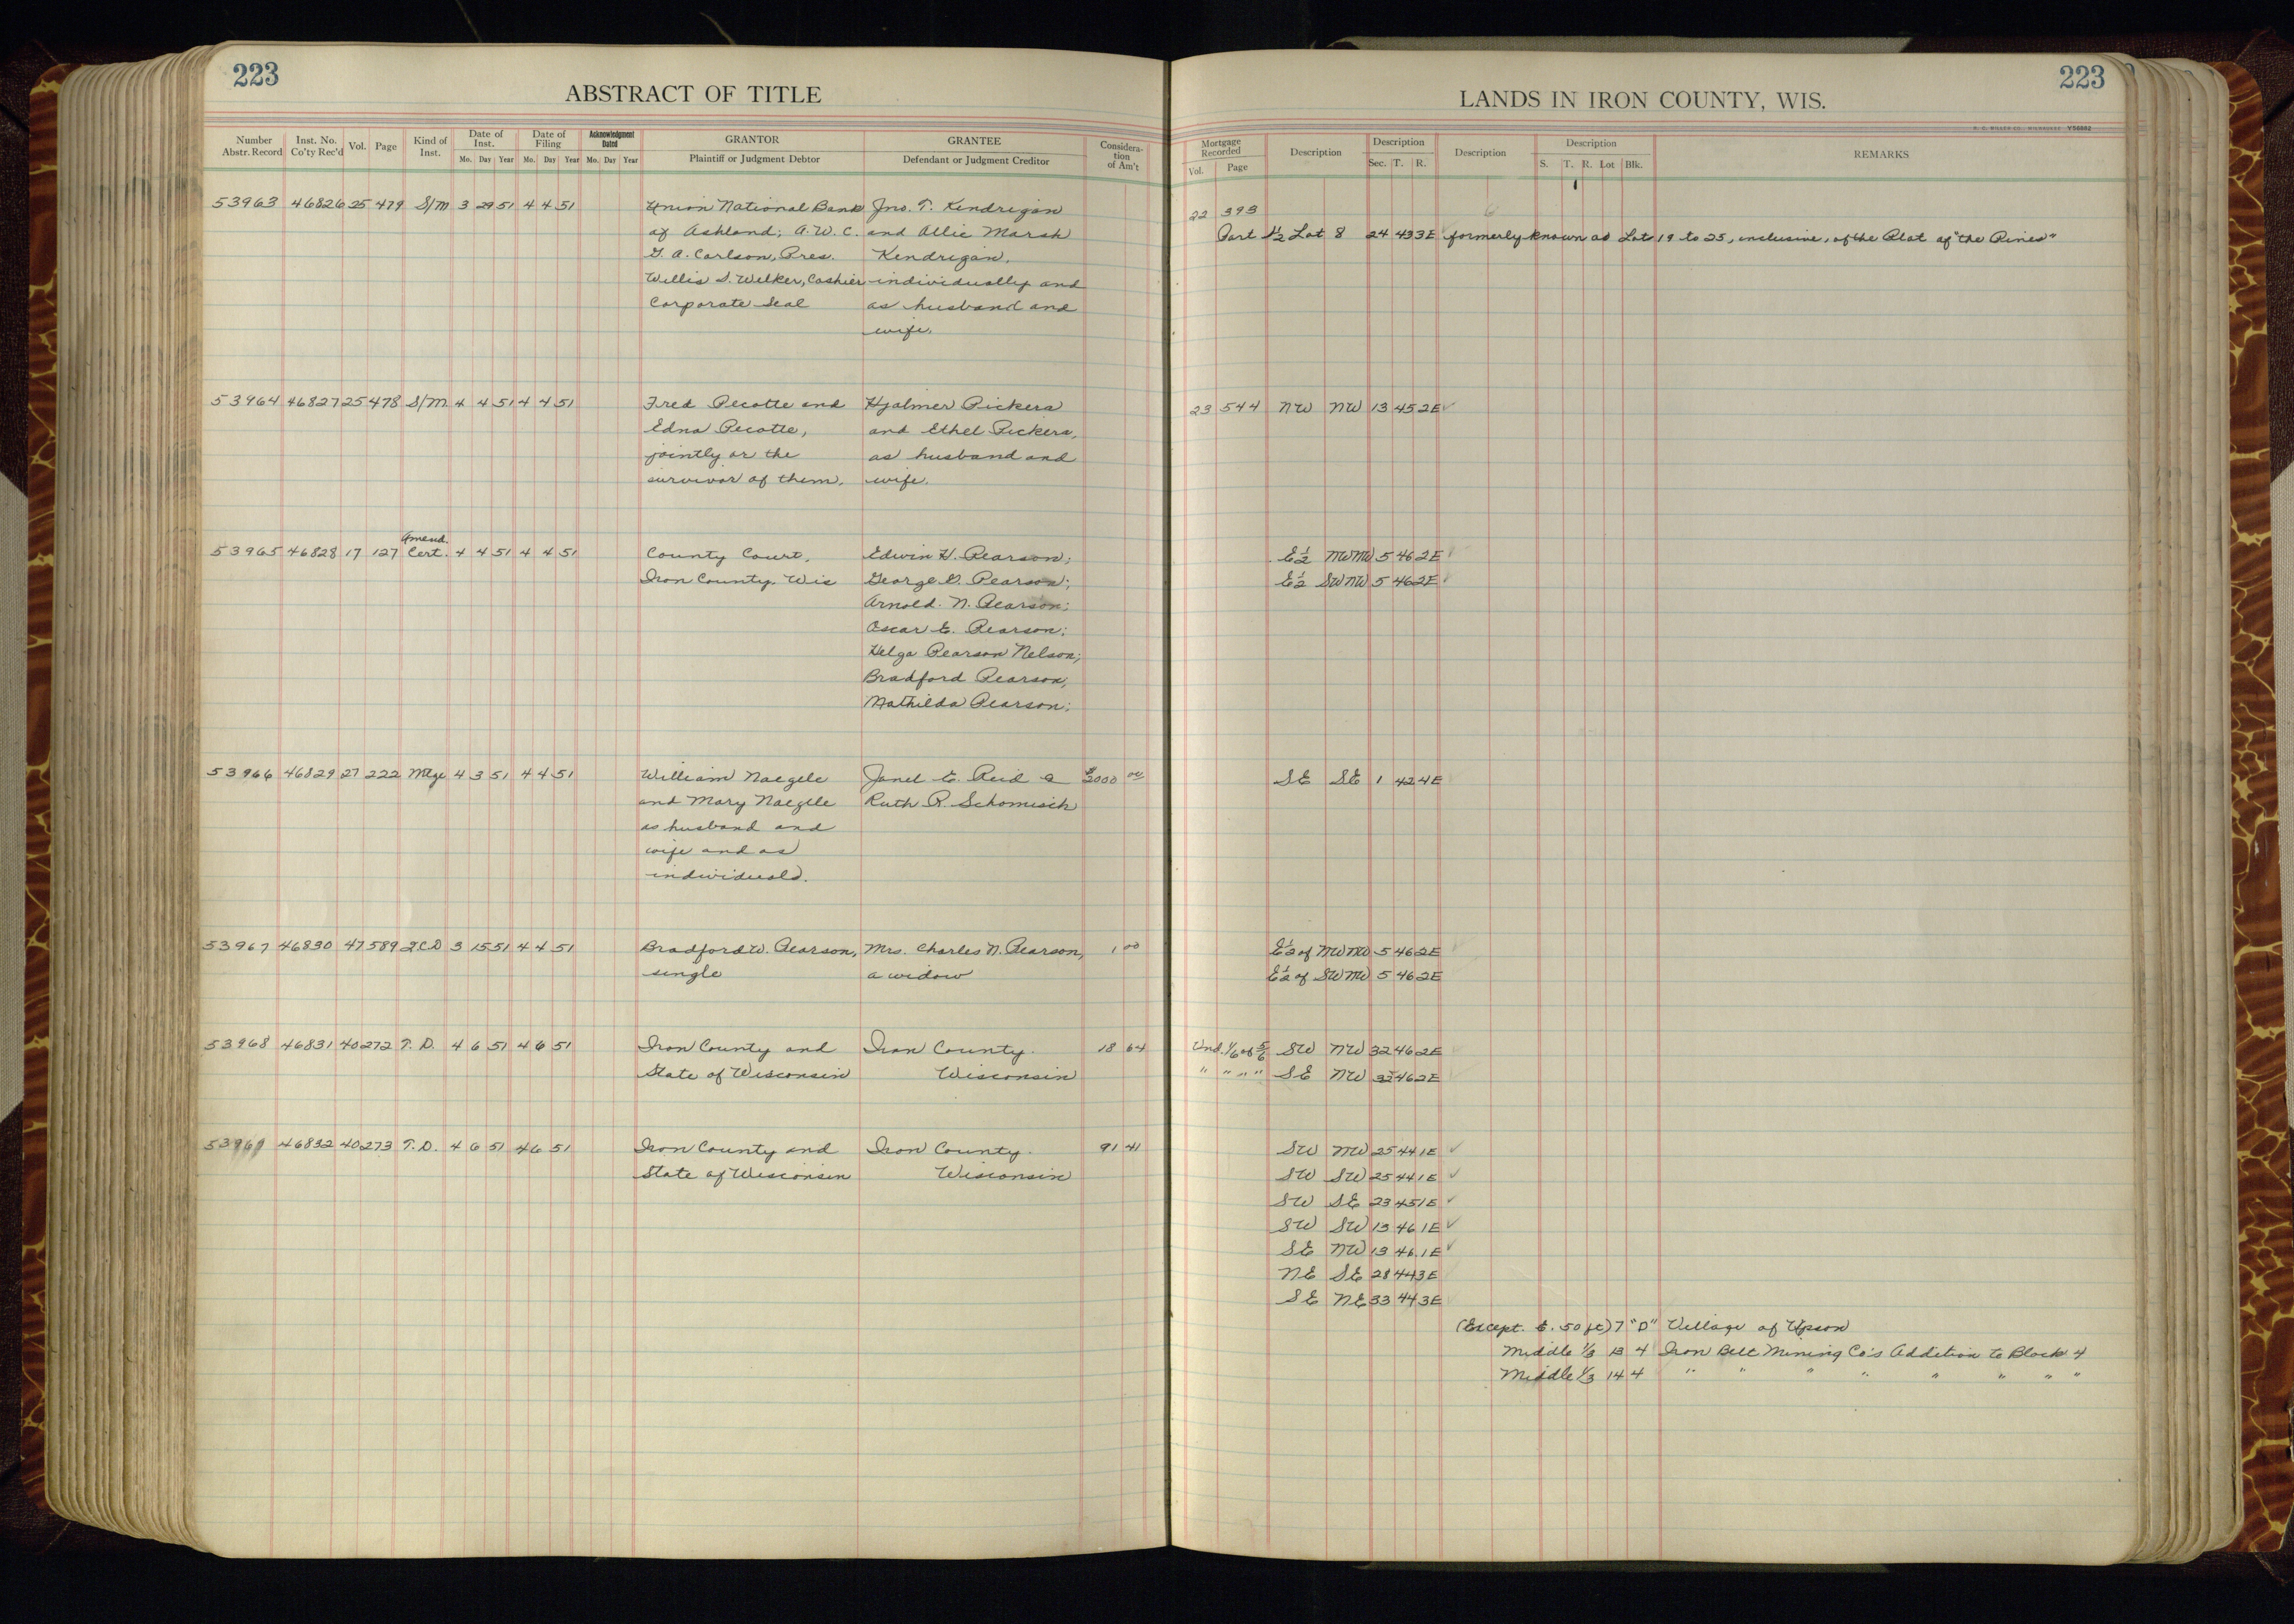 223
ABSTRACT OF TITLE
Number Abstr. Record Inst. No. Co'ty Rec'd Vol. Page Kind of Inst. Date of Inst. Mo. Day Year Date of Filing Mo. Day Year Acknowledgment Dated Mo. Day Year GRANTOR Plaintiff or Judgment Debtor GRANTEE Defendant or Judgment Creditor Considera-tion of Am't
53963 46826 25 479 S/M 3 29 51 4 4 51 Union National Bank Jno. T. Kendrigan
of Ashland; A.W.C. and Allie Marsh
G. A. Carlson, Pres. Kendrigan,
Willis S. Welker, Cashier individually and
Corporate Seal as husband and
wife.
53964 46827 25 478 S/M 4 4 51 4 4 51 Fred Pecotte and Hjalmer Pickera
Edna Pecotte, and Ethel Pickera,
jointly or the as husband and
survivor of them. wife.
Amend.
53965 46828 17 127 Cert. 4 4 51 4 4 51 County Court, Edwin H. Pearson;
Iron County, Wis George G. Pearson;
Arnold. N. Pearson;
Oscar E. Pearson;
Helga Pearson Nelson;
Bradford Pearson,
Mathilda Pearson;
53966 46829 27 222 Mtge 4 3 51 4 4 51 William Naegele Janet E. Reid & $2000 00
and Mary Naegele Ruth R. Schomisch
as husband and
wife and as
individuals.
53967 46830 47 589 2CD 3 15 51 4 4 51 Bradford W. Pearson, Mrs. Charles N. Pearson, 1 00
single a widow
53968 46831 40 272 T.D. 4 6 51 4 6 51 Iron County and Iron County. 18 64
State of Wisconsin Wisconsin
53969 46832 40 273 T.D. 4 6 51 4 6 51 Iron County and Iron County. 91 41
State of Wisconsin Wisconsin
223
LANDS IN IRON COUNTY, WIS.
Mortgage Recorded Vol. Page Description Description Sec. T. R. Description Description S. T. R. Lot Blk. REMARKS
22 393
Part S½ Lot 8 24 43 3E formerly known as Lots 19 to 25, inclusive, of the Plat of "the Pines"
23 544 NW NW 13 45 2E ✓
E½ NWNW 5 46 2E
E½ SWNW 5 46 2E
SE SE 1 42 4E
E½ of NWNW 5 46 2E
E½ of SWNW 5 46 2E
Und. 1/6 of 5/6 SW NW 32 46 2E
" " " " SE NW 32 46 2E
SW NW 25 44 1E ✓
SW SW 25 44 1E ✓
SW SE 23 45 1E ✓
SW SW 13 46 1E ✓
SE NW 13 46 1E ✓
NE SE 28 44 3E
SE NE 33 44 3E
(Except. E. 50 ft) 7 "D" Village of Upson
Middle 1/3 13 4 Iron Belt Mining Co's Addition to Block 4
Middle 1/3 14 4 " " " " " " " "